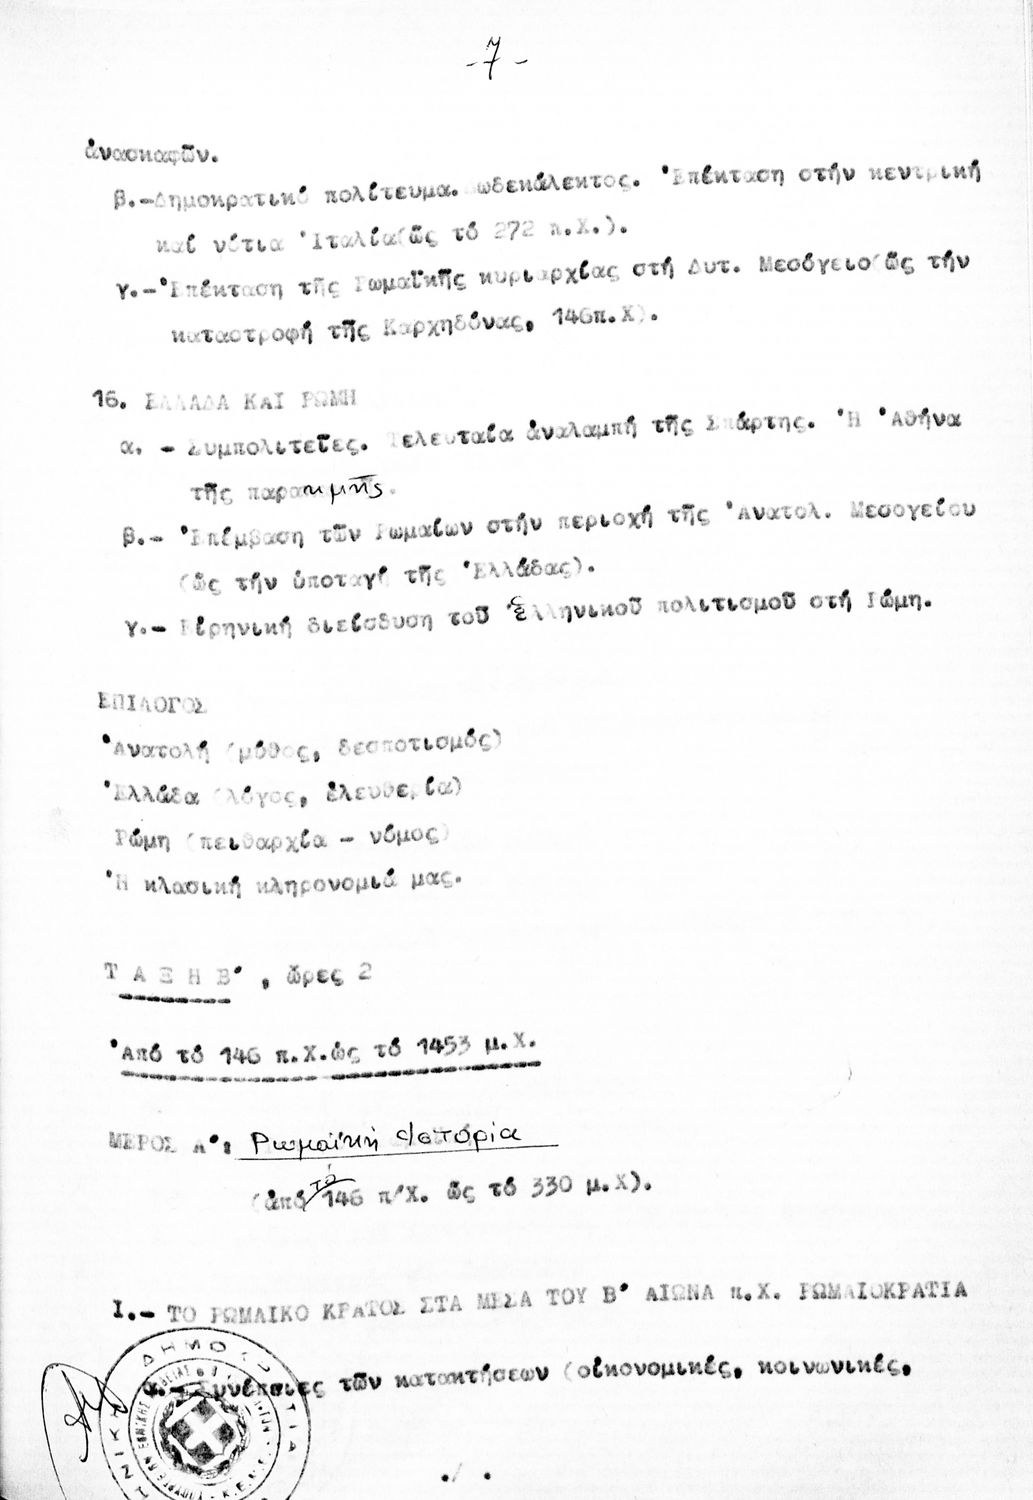 -7-
ἀνασκαφῶν.
β.-Δημοκρατικό πολίτευμα. Δωδεκάλεκτος. Ἐπέκταση στήν κεντρική
καί νότια Ἰταλία(ὥς τό 272 π.Χ.).
γ.-Ἐπέκταση τῆς Ρωμαϊκῆς κυριαρχίας στή Δυτ. Μεσόγειο(ὥς τήν
καταστροφή τῆς Καρχηδόνας, 146π.Χ).
16. ΕΛΛΑΔΑ ΚΑΙ ΡΩΜΗ
α. - Συμπολιτεῖες. Τελευταία ἀναλαμπή τῆς Σπάρτης. Ἡ Ἀθήνα
τῆς παρακμῆς.
β.- Ἐπέμβαση τῶν Ρωμαίων στήν περιοχή τῆς Ἀνατολ. Μεσογείου
(ὥς τήν ὑποταγή τῆς Ἑλλάδας).
γ.- Εἰρηνική διείσδυση τοῦ ἑλληνικοῦ πολιτισμοῦ στή Ρώμη.
ΕΠΙΛΟΓΟΣ
Ἀνατολή (μύθος, δεσποτισμός)
Ἑλλάδα (λόγος, ἐλευθερία)
Ρώμη (πειθαρχία - νόμος)
Ἡ κλασική κληρονομιά μας.
Τ Α Ξ Η Β' , ὧρες 2
Ἀπό τό 146 π.Χ.ὡς τό 1453 μ.Χ.
ΜΕΡΟΣ Α': Ρωμαϊκή Ἱστορία
(ἀπό τό 146 π/Χ. ὥς τό 330 μ.Χ).
Ι.- ΤΟ ΡΩΜΑΙΚΟ ΚΡΑΤΟΣ ΣΤΑ ΜΕΣΑ ΤΟΥ Β' ΑΙΩΝΑ π.Χ. ΡΩΜΑΙΟΚΡΑΤΙΑ
α.- Συνέπειες τῶν κατακτήσεων (οἰκονομικές, κοινωνικές,
./ .